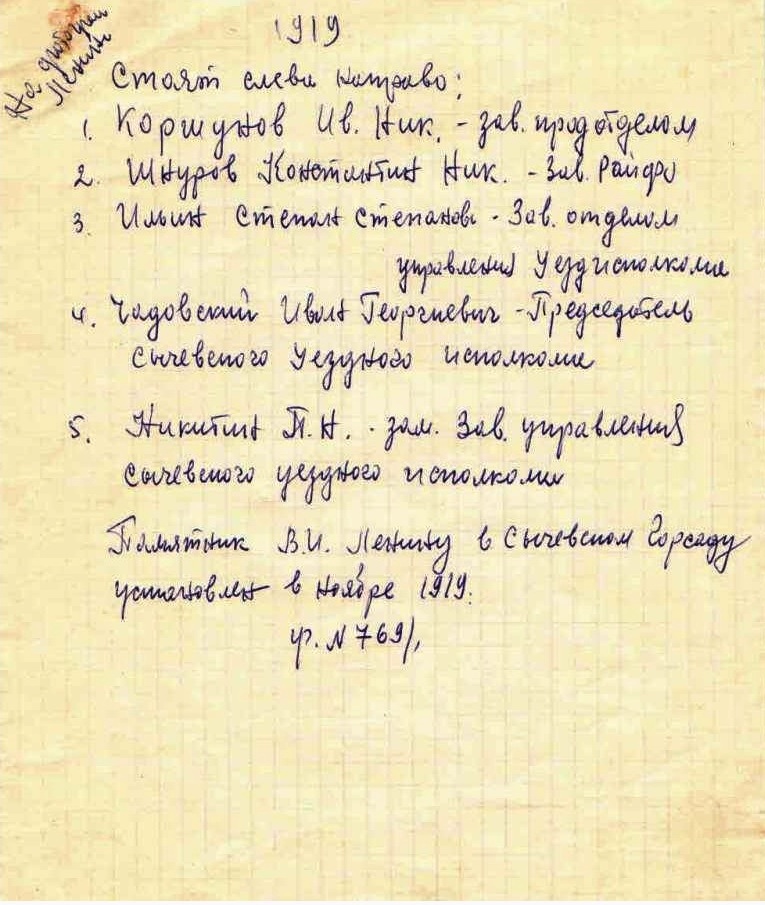 На
Ленин
1919
Стоят слева направо:
1. Коршунов Ив. Ник. - зав. продотделом
2. Шнуров Константин Ник. - Зав. Райфо
3. Ильин Степан Степанов - Зав. отделом
управления Уездисполкома
4. Чадовский Иван Георгиевич - Председатель
Сычевского Уездного исполкома
5. Никитин П.Н. - зам. Зав. управления
Сычевского уездного исполкома
Памятник В.И. Ленину в Сычевском Горсаду
установлен в ноябре 1919.
ф. N 769/,